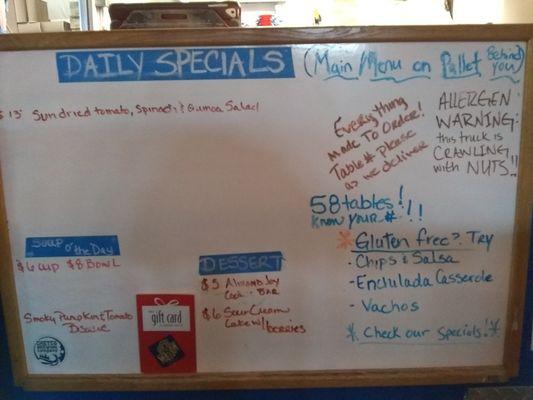 DAILY SPECIALS
(Main Menu on Pallet Behind you)
$13 Sundried tomato, Spinach & Quinoa Salad
Everything
Made To Order!
Table # please
as we deliver
ALLERGEN
WARNING:
this truck is
CRAWLING
with NUTS!!
58 tables!
Know your #!!!
Gluten free? Try
- Chips & Salsa
- Enchulada Casserole
- Vachos
* Check our Specials! *
SOUP o' the DAY
$6 cup $8 Bowl
Smoky Pumpkin & Tomato
Bisque
DESSERT
$5 Almond Joy
BAR
$6 Sour Cream
Cake w/ berries
gift card